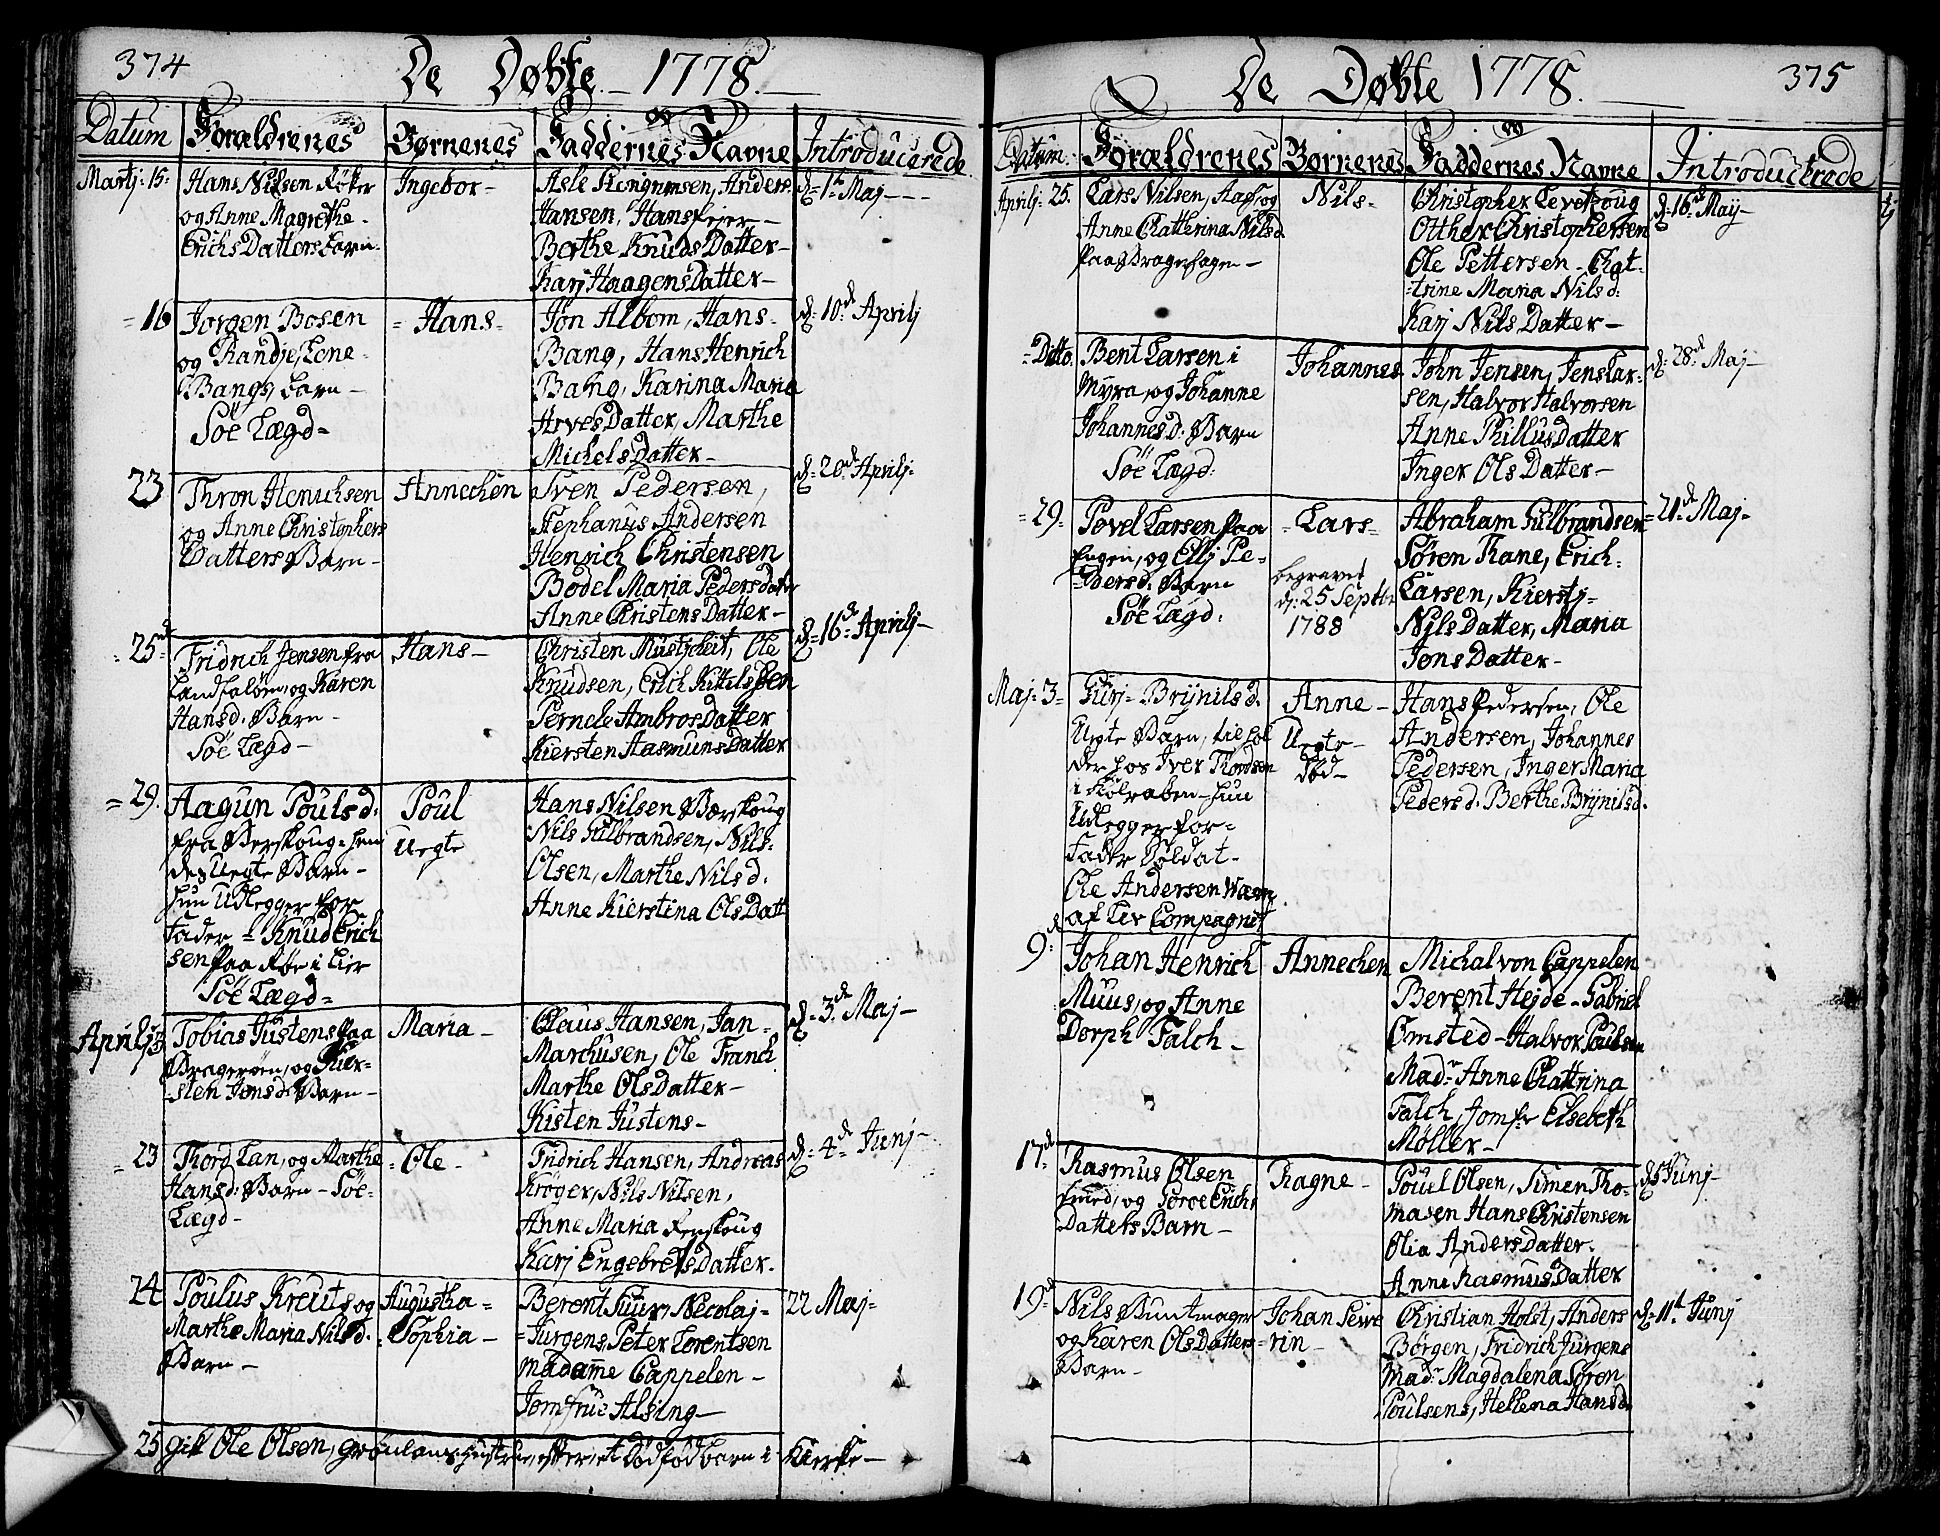 374
De Døbte 1778.
Datum Forældrenes Børnenes Faddernes Navne Introducerede
Martj: 15: Hans Nilsen
og Anne Magrethe
Erichs Datters barn.
Ingebor-
Asle Anders
Hansen, Hans
Berthe Knuds Datter-
Karj Haagens Datter-
d: 1t Maj-
= 16 Jorgen Bosen
og Randje Lene
Bangs, barn-
Søe Lægd-
= Hans-
Jon Albom, Hans
Bang, Hans Henrich
Bang, Karina Maria
Arves Datter, Marthe
Michels Datter-
d: 10d Aprilj
23 Thron Henrichsen
og Anne Christophers
Datters Barn-
Annechen
Sven Pedersen,
Stephanus Andersen
Henrich Christensen
Bodel Maria Pedersdatter
Anne Christens Datter-
d: 20d Aprilj-
= 25d Fridrich Jensen fra
Landfaløen, og Karen
Hansd. Barn-
Søe Lægd-
Hans-
Christen Ole
Knudsen, Erich Kittelssen
Pernele Ambros Datter
Kiersten Aasmuns Datter
d: 16d Aprilj-
= 29. Aagun Poulsd:
fra Berskoug hen
des Uegte Barn-
hun Udlegger for
Fader = Knud Erich
sen paa Røe i Lier
Søe Lægd=
Poul
Uegte
Hans Nilsen Bærskoug
Nils Gulbrandsen, Nils
Olsen, Marthe Nilsd.
Anne Kierstina Ols Datt
Aprilj Tobias Justens paa
Bragerøen, og Kier-
sten Jonsd. Barn-
Maria-
Claus Hansen, Jan
Marchusen, Ole Franch
Marthe Olsdatter-
Kisten Justens-
d: 3d Maj-
= 23 Thord Lan, og Marthe
Hansd: Barn- Søe-
Lægd-
= Ole-
Fridrich Hansen, Andreas
Krøger, Nils Nilsen,
Anne Maria Ferskoug
Karj Engebrets Datter.
d: 4d Junj-
24 Poulus Kreuts og
Marthe Maria Nilsd.
Barn-
Augustha=
=Sophia-
Berent Suur, Necolaj-
=Jurgens, Peter Lorentsen
Madame Cappelen-
Jomfrue Alsing-
22 Maj-
25 gik Ole Olsen, Grønlans hustrue, efter, et Dødfød barn i Kierke-
375
De Døbte 1778.
Datum Forældrenes Børnenes Faddernes Navne Introducerede
Aprilj: 25. Lars Nilsen, Aas, og
Anne Chatherina Nilsd
paa Bragehagen-
Nils-
Christopher
Otther Christophersen
Ole Pettersen- Chat-
-trine Maria Nilsd:
Karj Nils Datter-
d: 16d Maij-
= Ditto. Bent Larsen i
Myra, og Johanne
Johannesd. Barn
Søe Lægd.
Johannes
John Jensen, Jens Lar-
sen, Halvor Halvorsen
Anne Phillus Datter
Inger Ols Datter-
d: 28d Maj-
= 29. Povel Larsen paa
Engen, og Ellj Pe-
=dersd. Barn
Søe Lægd.
- Lars-
begravet
d: 25 Septbr
1788
Abraham Gulbrandsen
Søren Thane, Erich
Larsen, Kierstj
Nils Datter, Maria
Jons Datter-
= 21d Maj-
Maj= 3= Gurj- Brynilsd.
Uegte Barn,
der hos Iver Thordsen
i hun
Udlegger for=
Fader Soldat-
Ole Andersen
af Lier Compagniet
Anne-
Uegte-
død-
Hans Pedersen, Ole
Andersen, Johannes
Pedersen, Inger Maria
Pedersd. Berthe Brynilsd.
9d Johan Henrich
Muus, og Anne
Dorph Falch-
Annechen
Michal von Cappelen
Berent Hejde- Gabriel
Omsted- Halvor Poulsen
Madr Anne Chattrina
Falch, Jomfr Elsebeth
Møller-
17d Rasmus Olsen
Smed, og Goroe Erichs
Datters Barn-
Ragne-
Pouel Olsen, Simen Tho-
masen Hans Christensen
Olia Anders Datter.
Anne Rasmus Datter
d 5 Junj-
19d Nils Buntmager
og Karen Ols Datters
Barn-
Johan Seve
=rin-
Christian Holst, Anders
Børgen, Fridrich Jürgens
Madr Magdalena Søren
Poulsens, Hellena Hansd.
d: 11t Junj